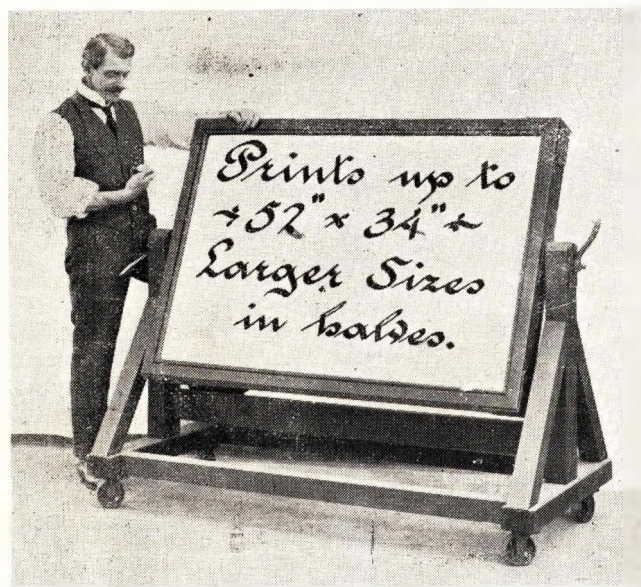 Prints up to
52" x 34"
Larger Sizes
in halves.